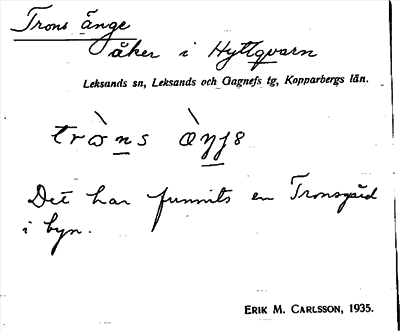 Trons änge
åker i Hyttqvarn
Leksands sn, Leksands och Gagnefs tg, Kopparbergs län.
tròns
Det har funnits en Tronsgård
i byn.
ERIK M. CARLSSON, 1935.